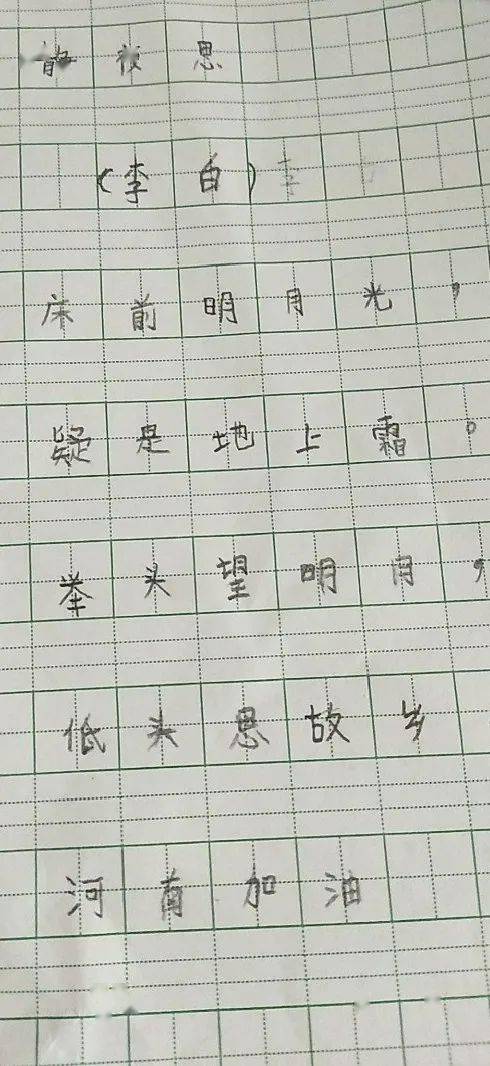 静夜思
（李白）
床前明月光，
疑是地上霜。
举头望明月，
低头思故乡
河南加油